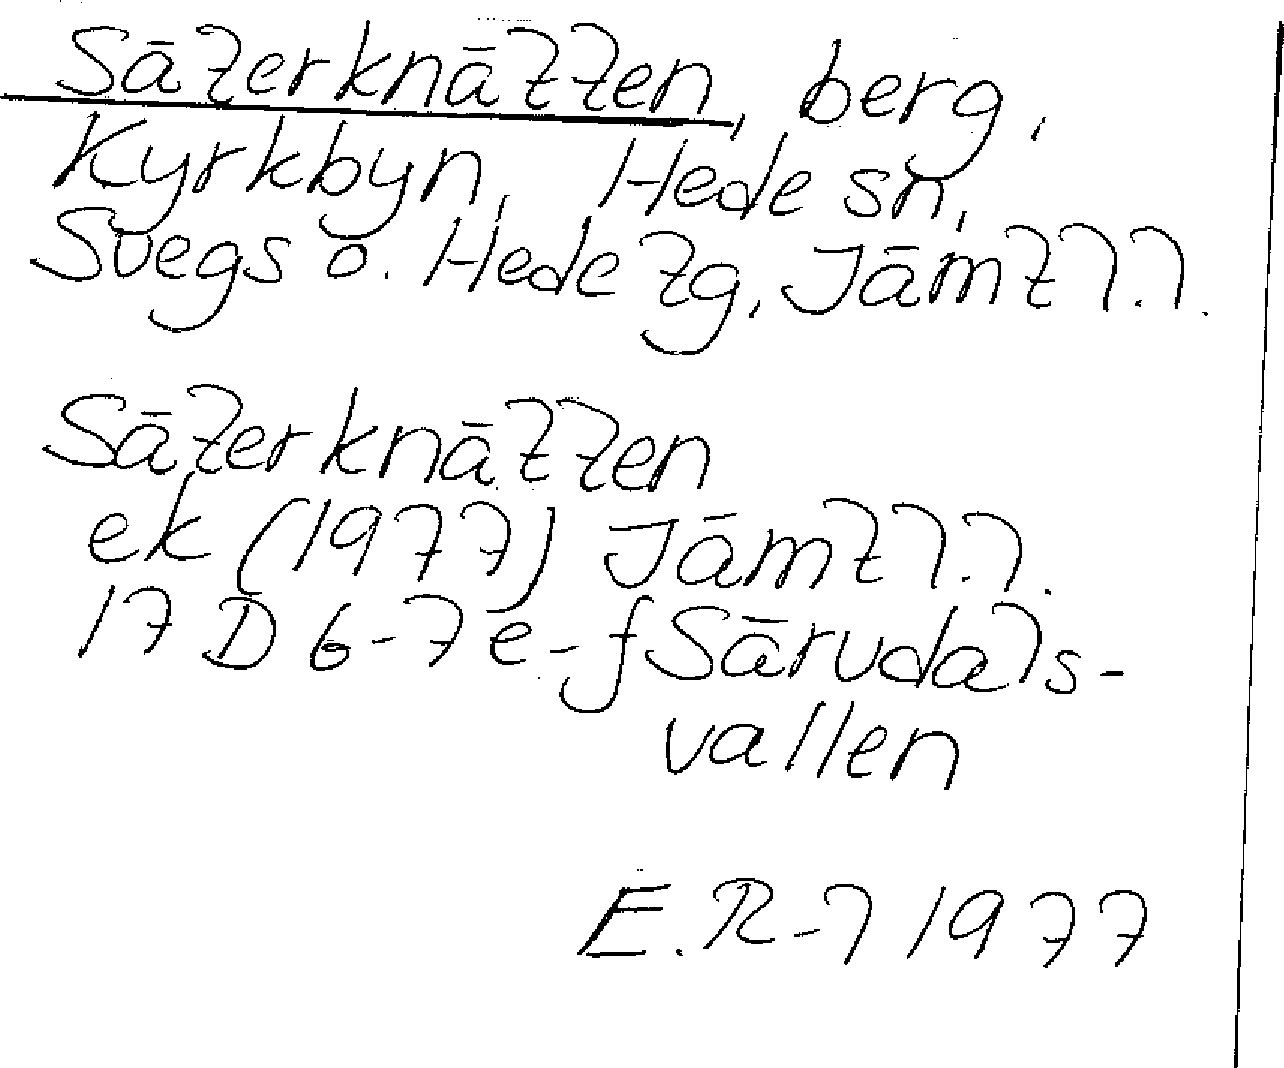 Säterknätten, berg,
Kyrkbyn, Hede sn,
Svegs o. Hede tg, Jämtl.l.
Säterknätten
ek (1977) Jämtl.l.
17 D 6-7 e-f Särvdals-
vallen
E.R-l 1977